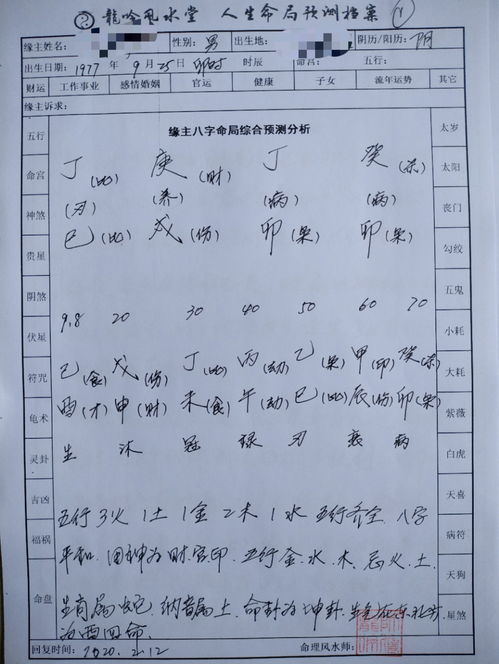 龍吟風水堂 人生命局预测档案
缘主姓名: 性别: 男 出生地: 阴历/阳历: 阴
出生日期: 1977 年 9 月 25 日 卯时 时辰 命宫: 五行:
财运 工作事业 感情婚姻 官运 健康 子女 流年运势 其它
缘主诉求:
缘主八字命局综合预测分析
五行 太岁
命宫 丁(比) 庚(财) 丁 癸(杀) 太阳
神煞 (刃) (养) (病) (病) 丧门
贵星 巳(比) 戌(伤) 卯(枭) 卯(枭) 勾绞
阴煞 五鬼
伏星 9.8 20 30 40 50 60 70 小耗
符咒 己(食) 戊(伤) 丁(比) 丙(劫) 乙(枭) 甲(印) 癸(杀) 大耗
龟术 酉(才) 申(财) 未(食) 午(劫) 巳(比) 辰(伤) 卯(枭) 紫薇
灵卦 生 沐 冠 禄 刃 衰 病 白虎
吉凶 天喜
福祸 五行3火1土1金2木1水 五行齐全 八字 病符
平和 用神为财官印 五行金、水、木 忌火、土 天狗
命盘 生肖属蛇 纳音属土 命卦为坤卦 星煞
为西四命
回复时间: 2020.2.12 命理风水师: